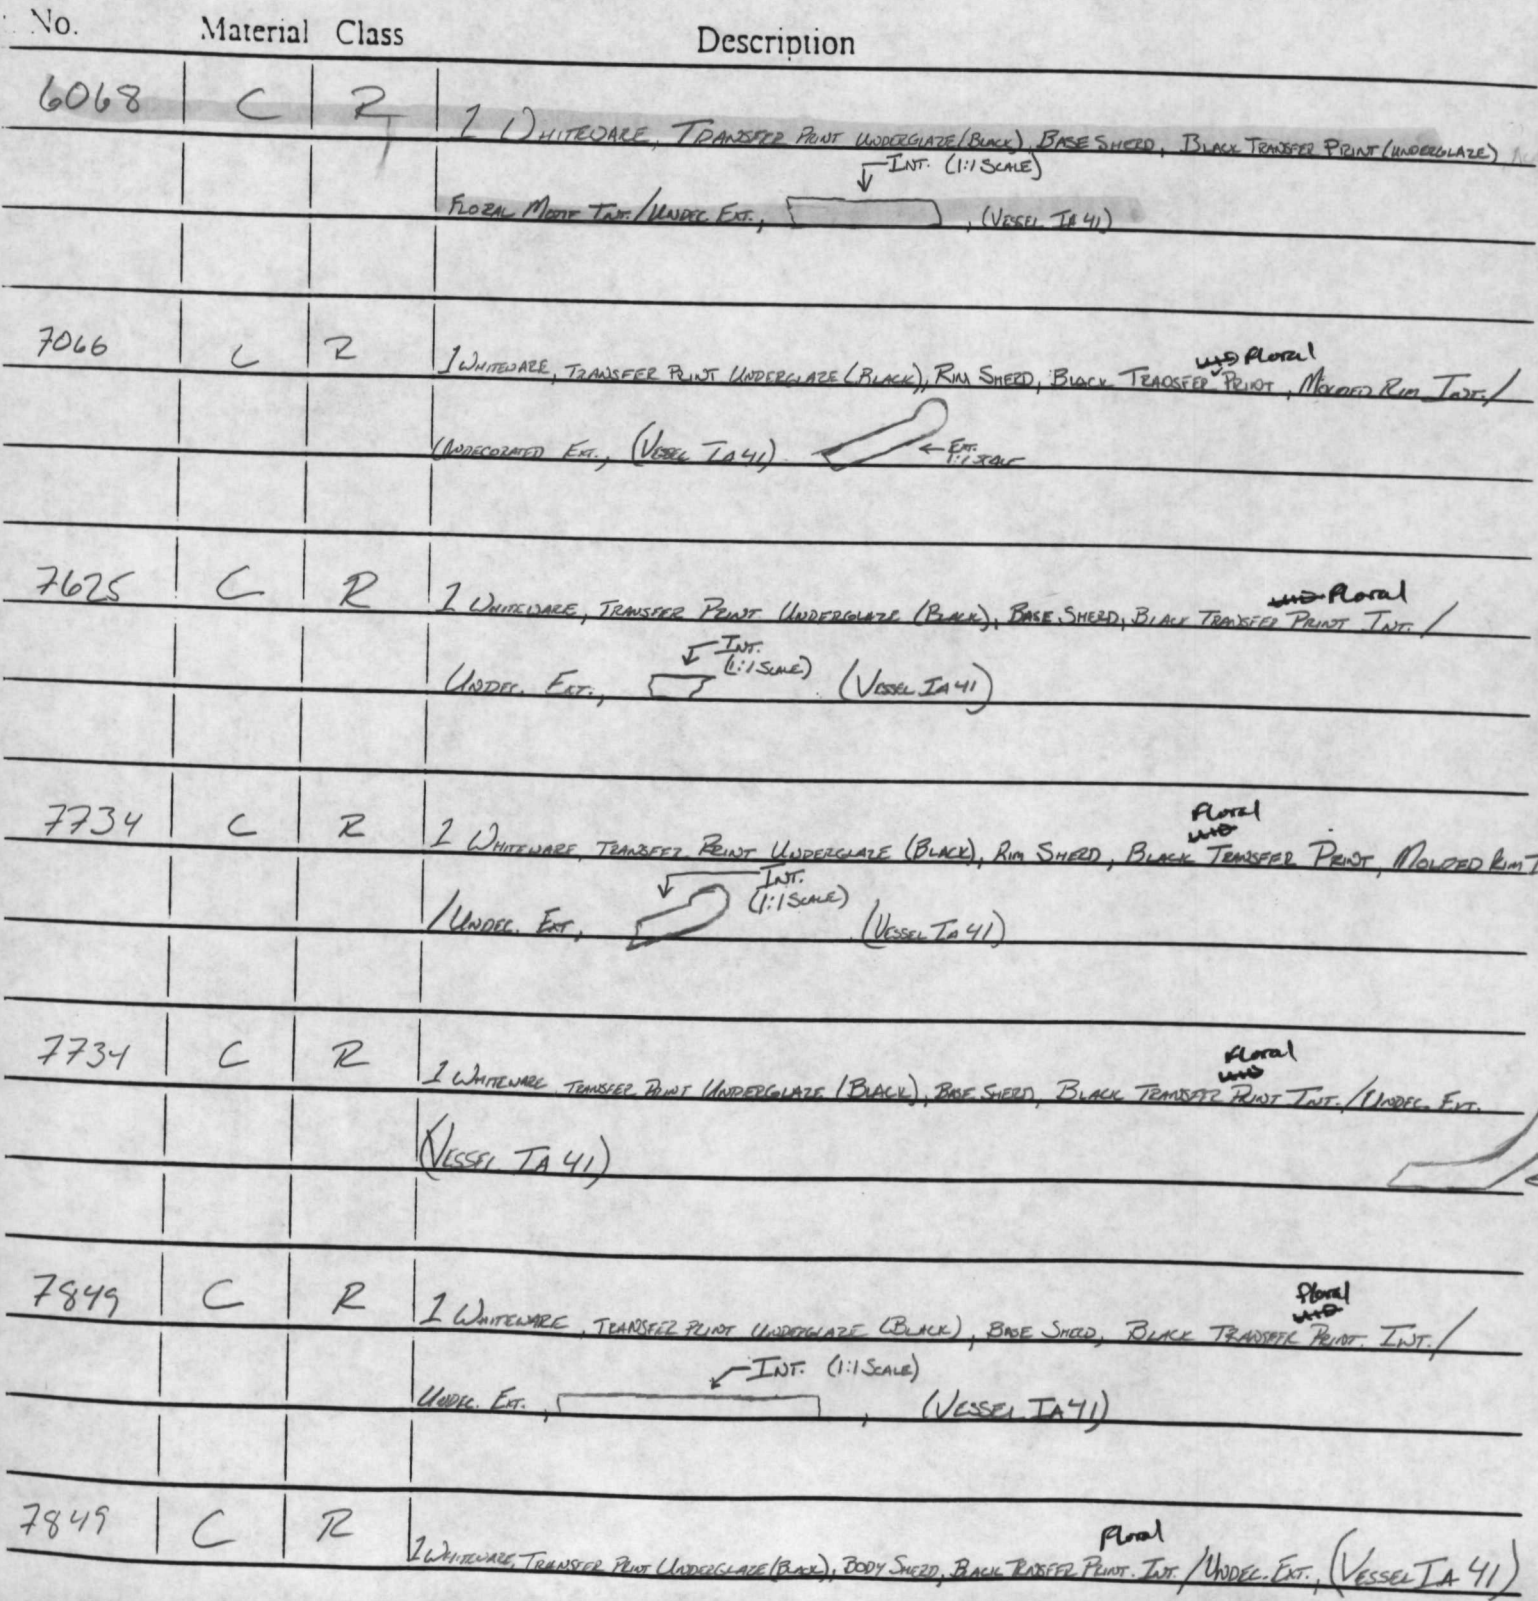 No. Material Class Description
6068 C R 1 WHITEWARE, TRANSFER PRINT UNDERGLAZE (BLACK), BASE SHERD, BLACK TRANSFER PRINT (UNDERGLAZE)
INT. (1:1 SCALE)
FLORAL MOTIF INT./UNDEC. EXT., , (VESSEL IA 41)
Floral
7066 C R 1 WHITEWARE, TRANSFER PRINT UNDERGLAZE (BLACK), RIM SHERD, BLACK TRANSFER PRINT, MOLDED RIM INT./
UNDECORATED EXT., (VESSEL IA 41) EXT.
1:1 SCALE
Floral
7625 C R 1 WHITEWARE, TRANSFER PRINT UNDERGLAZE (BLACK), BASE SHERD, BLACK TRANSFER PRINT INT./
INT.
(1:1 SCALE)
UNDEC. EXT., (VESSEL IA 41)
Floral
7734 C R 1 WHITEWARE, TRANSFER PRINT UNDERGLAZE (BLACK), RIM SHERD, BLACK TRANSFER PRINT, MOLDED RIM I
INT.
(1:1 SCALE)
/UNDEC. EXT., (VESSEL IA 41)
Floral
7734 C R 1 WHITEWARE, TRANSFER PRINT UNDERGLAZE (BLACK), BASE SHERD, BLACK TRANSFER PRINT INT./UNDEC. EXT.
(VESSEL IA 41)
Floral
7849 C R 1 WHITEWARE, TRANSFER PRINT UNDERGLAZE (BLACK), BASE SHERD, BLACK TRANSFER PRINT. INT./
INT. (1:1 SCALE)
UNDEC. EXT., , (VESSEL IA 41)
Floral
7849 C R 1 WHITEWARE, TRANSFER PRINT UNDERGLAZE (BLACK), BODY SHERD, BLACK TRANSFER PRINT. INT./UNDEC. EXT., (VESSEL IA 41)